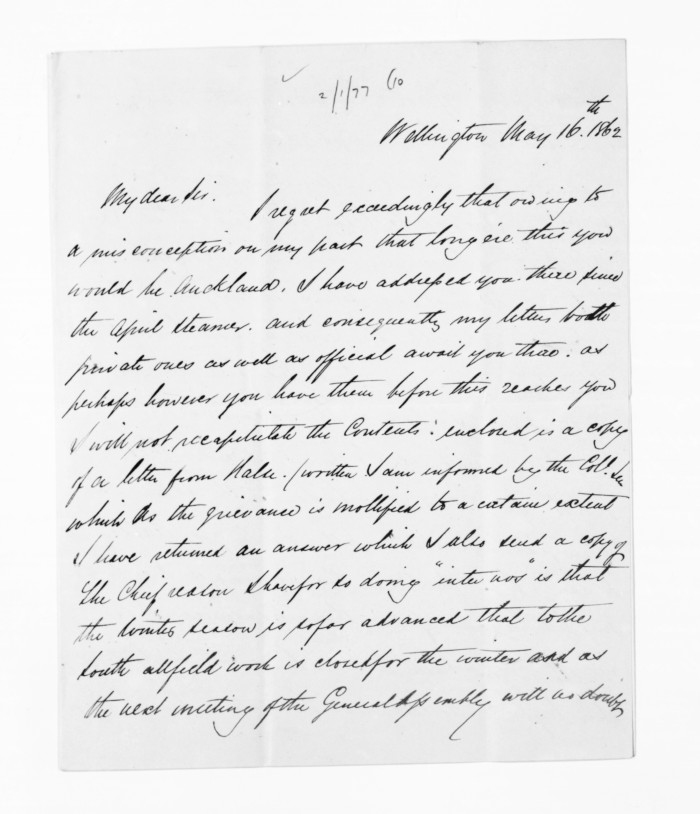 2/1/77 60
Wellington May 16.th 1862
My dear Sir. I regret exceedingly that owing to
a misconception on my part that long ere this you
would be Auckland. I have addressed you there since
the April steamer. and consequently my letters both
private ones as well as official await you there. as
perhaps however you have them before this reaches you
I will not recapitulate the Contents: enclosed is a copy
of a letter from Halse. (written I am informed by the Col.
which as the grievance is mollified to a certain extent
I have returned an answer which I also send a copy of
The Chief reason I have for so doing "inter nos" is that
the Winter season is so far advanced that to the
South all field work is closed for the winter and as
the next meeting of the General Assembly will no doubt